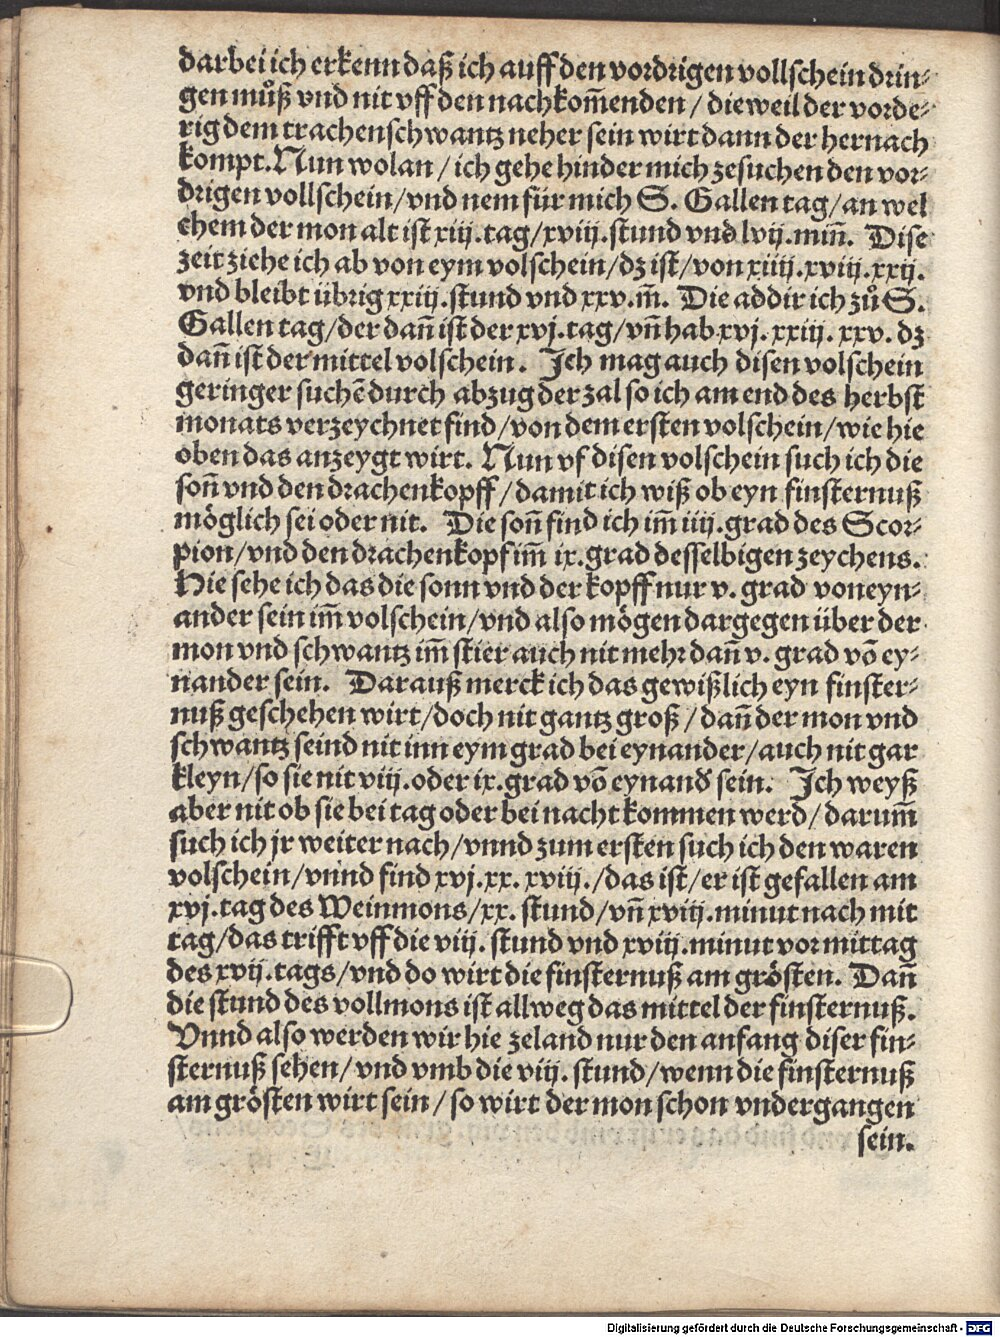 darbei ich erkenn daß ich auff den vordrigen vollschein drin⸗
gen můß vnd nit vff den nachkom̃enden / dieweil der vorde⸗
rig dem trachenschwantz neher sein wirt dann der hernach
kompt. Nun wolan / ich gehe hinder mich zesuchen den vor⸗
drigen vollschein / vnd nem für mich S. Gallen tag / an wel
chem der mon alt ist xiij. tag / xviij. stund vnd lvij. miñ. Dise
zeit ziehe ich ab von eym volschein / dz ist / von xiiij. xviij. xxij.
vnd bleibt übrig xxiij. stund vnd xxv. m̃. Die addir ich zů S.
Gallen tag / der dañ ist der xvj. tag / vñ hab xvj. xxiij. xxv. dz
dañ ist der mittel volschein. Ich mag auch disen volschein
geringer suchẽ durch abzug der zal so ich am end des herbst
monats verzeychnet find / von dem ersten volschein / wie hie
oben das anzeygt wirt. Nun vf disen volschein such ich die
soñ vnd den drachenkopff / damit ich wiß ob eyn finsternuß
möglich sei oder nit. Die soñ find ich im̃ iiij. grad des Scor⸗
pion / vnd den drachenkopf im̃ ix. grad desselbigen zeychens.
Hie sehe ich das die sonn vnd der kopff nur v. grad von eyn⸗
ander sein im̃ volschein / vnd also mögen dargegen über der
mon vnd schwantz im̃ stier auch nit mehr dañ v. grad võ ey⸗
nander sein. Darauß merck ich das gewißlich eyn finster⸗
nuß geschehen wirt / doch nit gantz groß / dañ der mon vnd
schwantz seind nit inn eym grad bei eynander / auch nit gar
kleyn / so sie nit viij. oder ix. grad võ eynand̃ sein. Ich weyß
aber nit ob sie bei tag oder bei nacht kommen werd / darum̃
such ich jr weiter nach / vnnd zum ersten such ich den waren
volschein / vnnd find xvj. xx. xviij. / das ist / er ist gefallen am
xvj. tag des Weinmons / xx. stund / vñ xviij. minut nach mit
tag / das trifft vff die viij. stund vnd xviij. minut vor mittag
des xvij. tags / vnd do wirt die finsternuß am grösten. Dañ
die stund des vollmons ist allweg das mittel der finsternuß.
Vnnd also werden wir hie zeland nur den anfang diser fin⸗
sternuß sehen / vnd vmb die viij. stund / wenn die finsternuß
am grösten wirt sein / so wirt der mon schon vndergangen
sein.
Digitalisierung gefördert durch die Deutsche Forschungsgemeinschaft - DFG